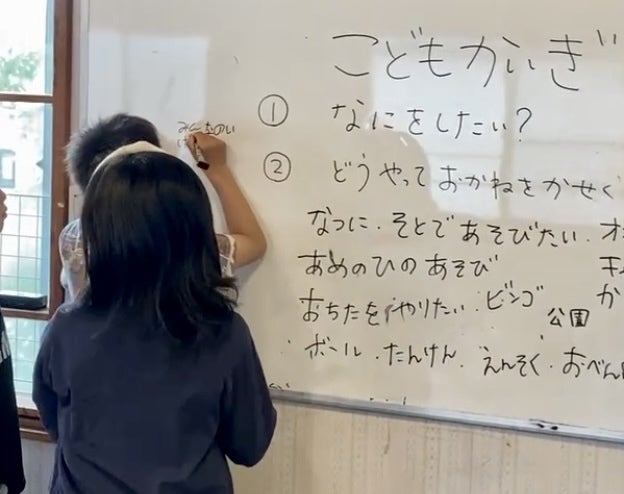 こどもかいぎ
① なにをしたい?
② どうやっておかねをかせく
みんなのい
なつに・そとであそびたい・オ
あめのひのあそび キ
おちたをやりたい・ビンゴ 公園 か
ボール・たんけん・えんそく・おべん